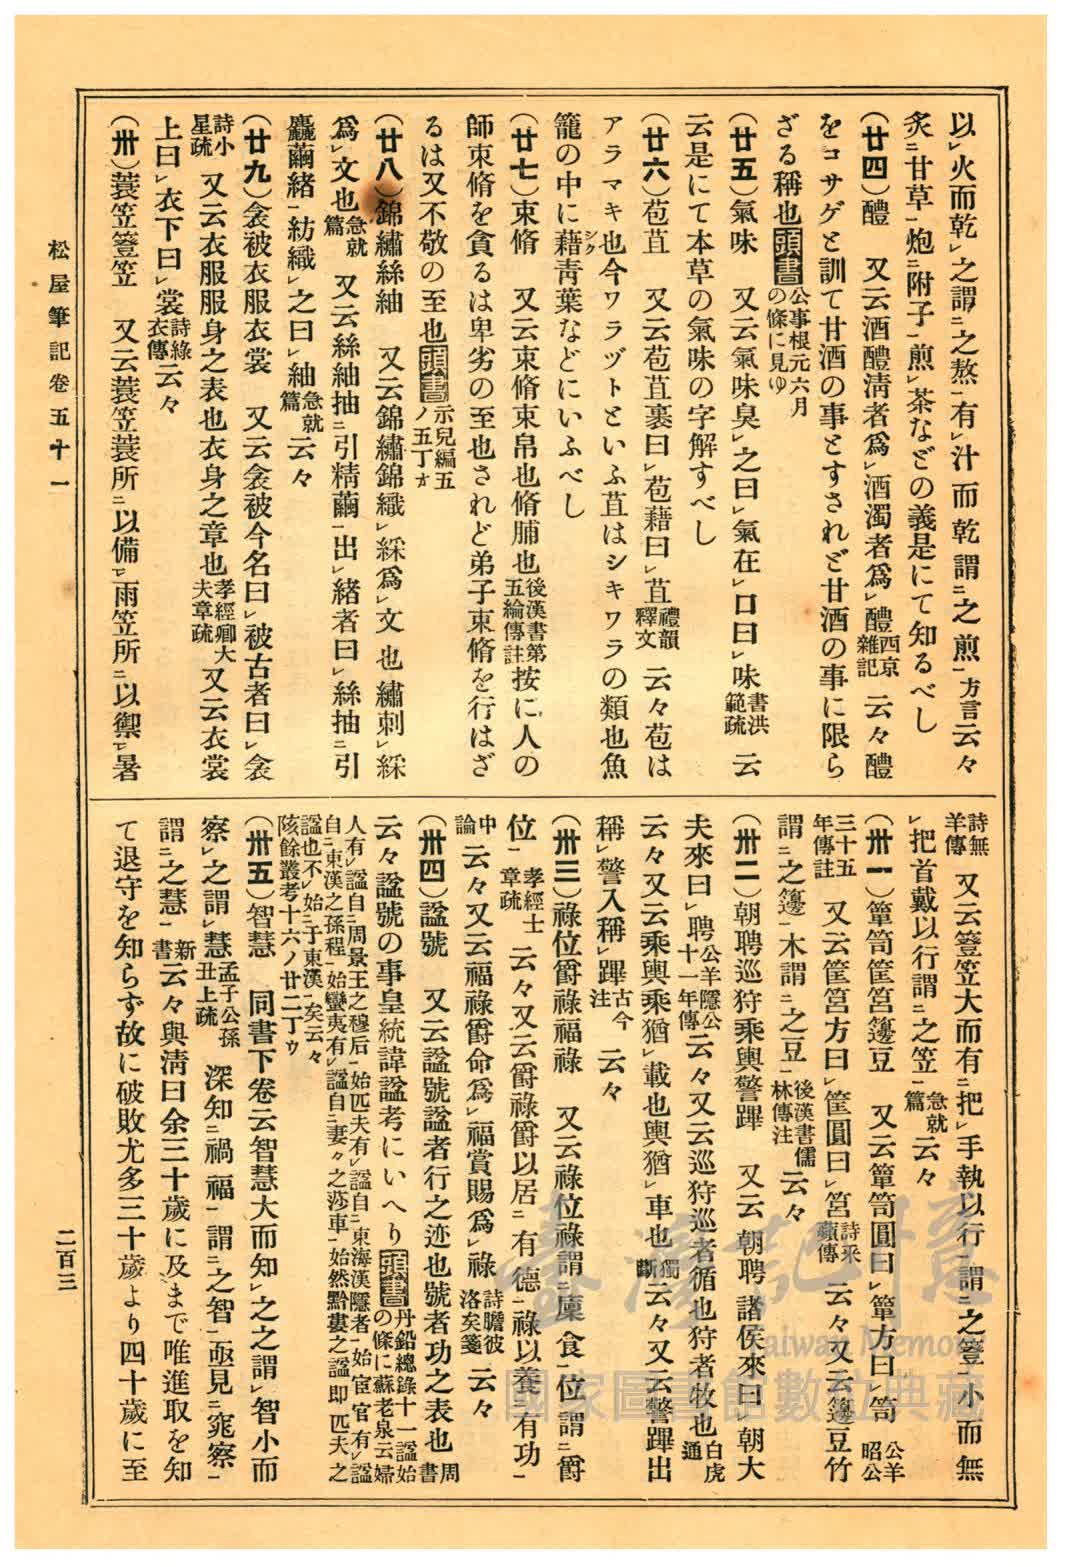 以レ火而乾レ之謂ニ之熬一有レ汁而乾謂ニ之煎一方言云々
炙ニ甘草一炮ニ附子一煎レ茶などの義是にて知るべし
(廿四)醴　又云酒醴淸者爲レ酒濁者爲レ醴西京雜記云々醴
をコサゲと訓て甘酒の事とすされど甘酒の事に限ら
ざる稱也頭書公事根元六月の條に見ゆ
(廿五)氣味　又云氣味臭レ之曰レ氣在レ口曰レ味書洪範疏云
云是にて本草の氣味の字解すべし
(廿六)苞苴　又云苞苴裹曰レ苞藉曰レ苴禮韻釋文云々苞は
アラマキ也今ワラヅトといふ苴はシキワラの類也魚
籠の中に藉シク靑葉などにいふべし
(廿七)束脩　又云束脩束帛也脩脯也後漢書第五綸傳註按に人の
師束脩を貪るは卑劣の至也されど弟子束脩を行はざ
るは又不敬の至也頭書示兒編五ノ五丁オ
(廿八)錦繡絲紬　又云錦繡錦織レ綵爲レ文也繡刺レ綵
爲レ文也急就篇　又云絲紬抽ニ引精繭一出レ緒者曰レ絲抽ニ引
麤繭緖一紡織レ之曰レ紬急就篇云々
(廿九)衾被衣服衣裳　又云衾被今名曰レ被古者曰レ衾
詩小星疏　又云衣服服身之表也衣身之章也孝經卿大夫章疏　又云衣裳
上曰レ衣下曰レ裳詩綠衣傳云々
(卅)蓑笠簦笠　又云蓑笠蓑所ニ以備一レ雨笠所ニ以禦一レ暑
詩無羊傳　又云簦笠大而有ニ把レ手執以行一謂ニ之簦一小而無
レ把首戴以行謂ニ之笠一急就篇云々
(卅一)簞笥筐筥籩豆　又云簞笥圓曰レ簞方曰レ笥公羊昭公
三十五年傳註　又云筐筥方曰レ筐圓曰レ筥詩采蘋傳　云々又云籩豆竹
謂ニ之籩一木謂ニ之豆一後漢書儒林傳注云々
(卅二)朝聘巡狩乘輿警蹕　又云朝聘諸侯來曰レ朝大
夫來曰レ聘公羊隱公十一年傳云々又云巡狩巡者循也狩者牧也白虎通
云々又云乘輿乘猶レ載也輿猶レ車也獨斷云々又云警蹕出
稱レ警入稱レ蹕古今注　云々
(卅三)祿位爵祿福祿　又云祿位祿謂ニ廩食一位謂ニ爵
位一孝經士章疏　云々又云爵祿爵以居ニ有德一祿以養ニ有功一
中論云々又云福祿爵命爲レ福賞賜爲レ祿詩瞻彼洛矣箋云々
(卅四)諡號　又云諡號諡者行之迹也號者功之表也周書
云々諡號の事皇統諱諡考にいへり頭書丹鉛總錄十一諡始の條に蘇老泉云婦
人有レ諡自ニ周景王之穆后一始匹夫有レ諡自ニ東海漢隱者一始宦官有レ諡
自ニ東漢之孫程一始蠻夷有レ諡自ニ妻々之莎車一始然黔婁之諡卽匹夫之
諡也不レ始ニ于東漢一矣云々
陔餘叢考十六ノ廿二丁ウ
(卅五)智慧　同書下卷云智慧大而知レ之之謂レ智小而
察レ之謂レ慧孟子公孫丑上疏　深知ニ禍福一謂ニ之智一亟見ニ窕察一
謂ニ之慧一新書云々與淸曰余三十歲に及まで唯進取を知
て退守を知らず故に破敗尤多三十歲より四十歲に至
松屋筆記卷五十一
二百三
臺灣記憶
Taiwan Memory
國家圖書館數位典藏